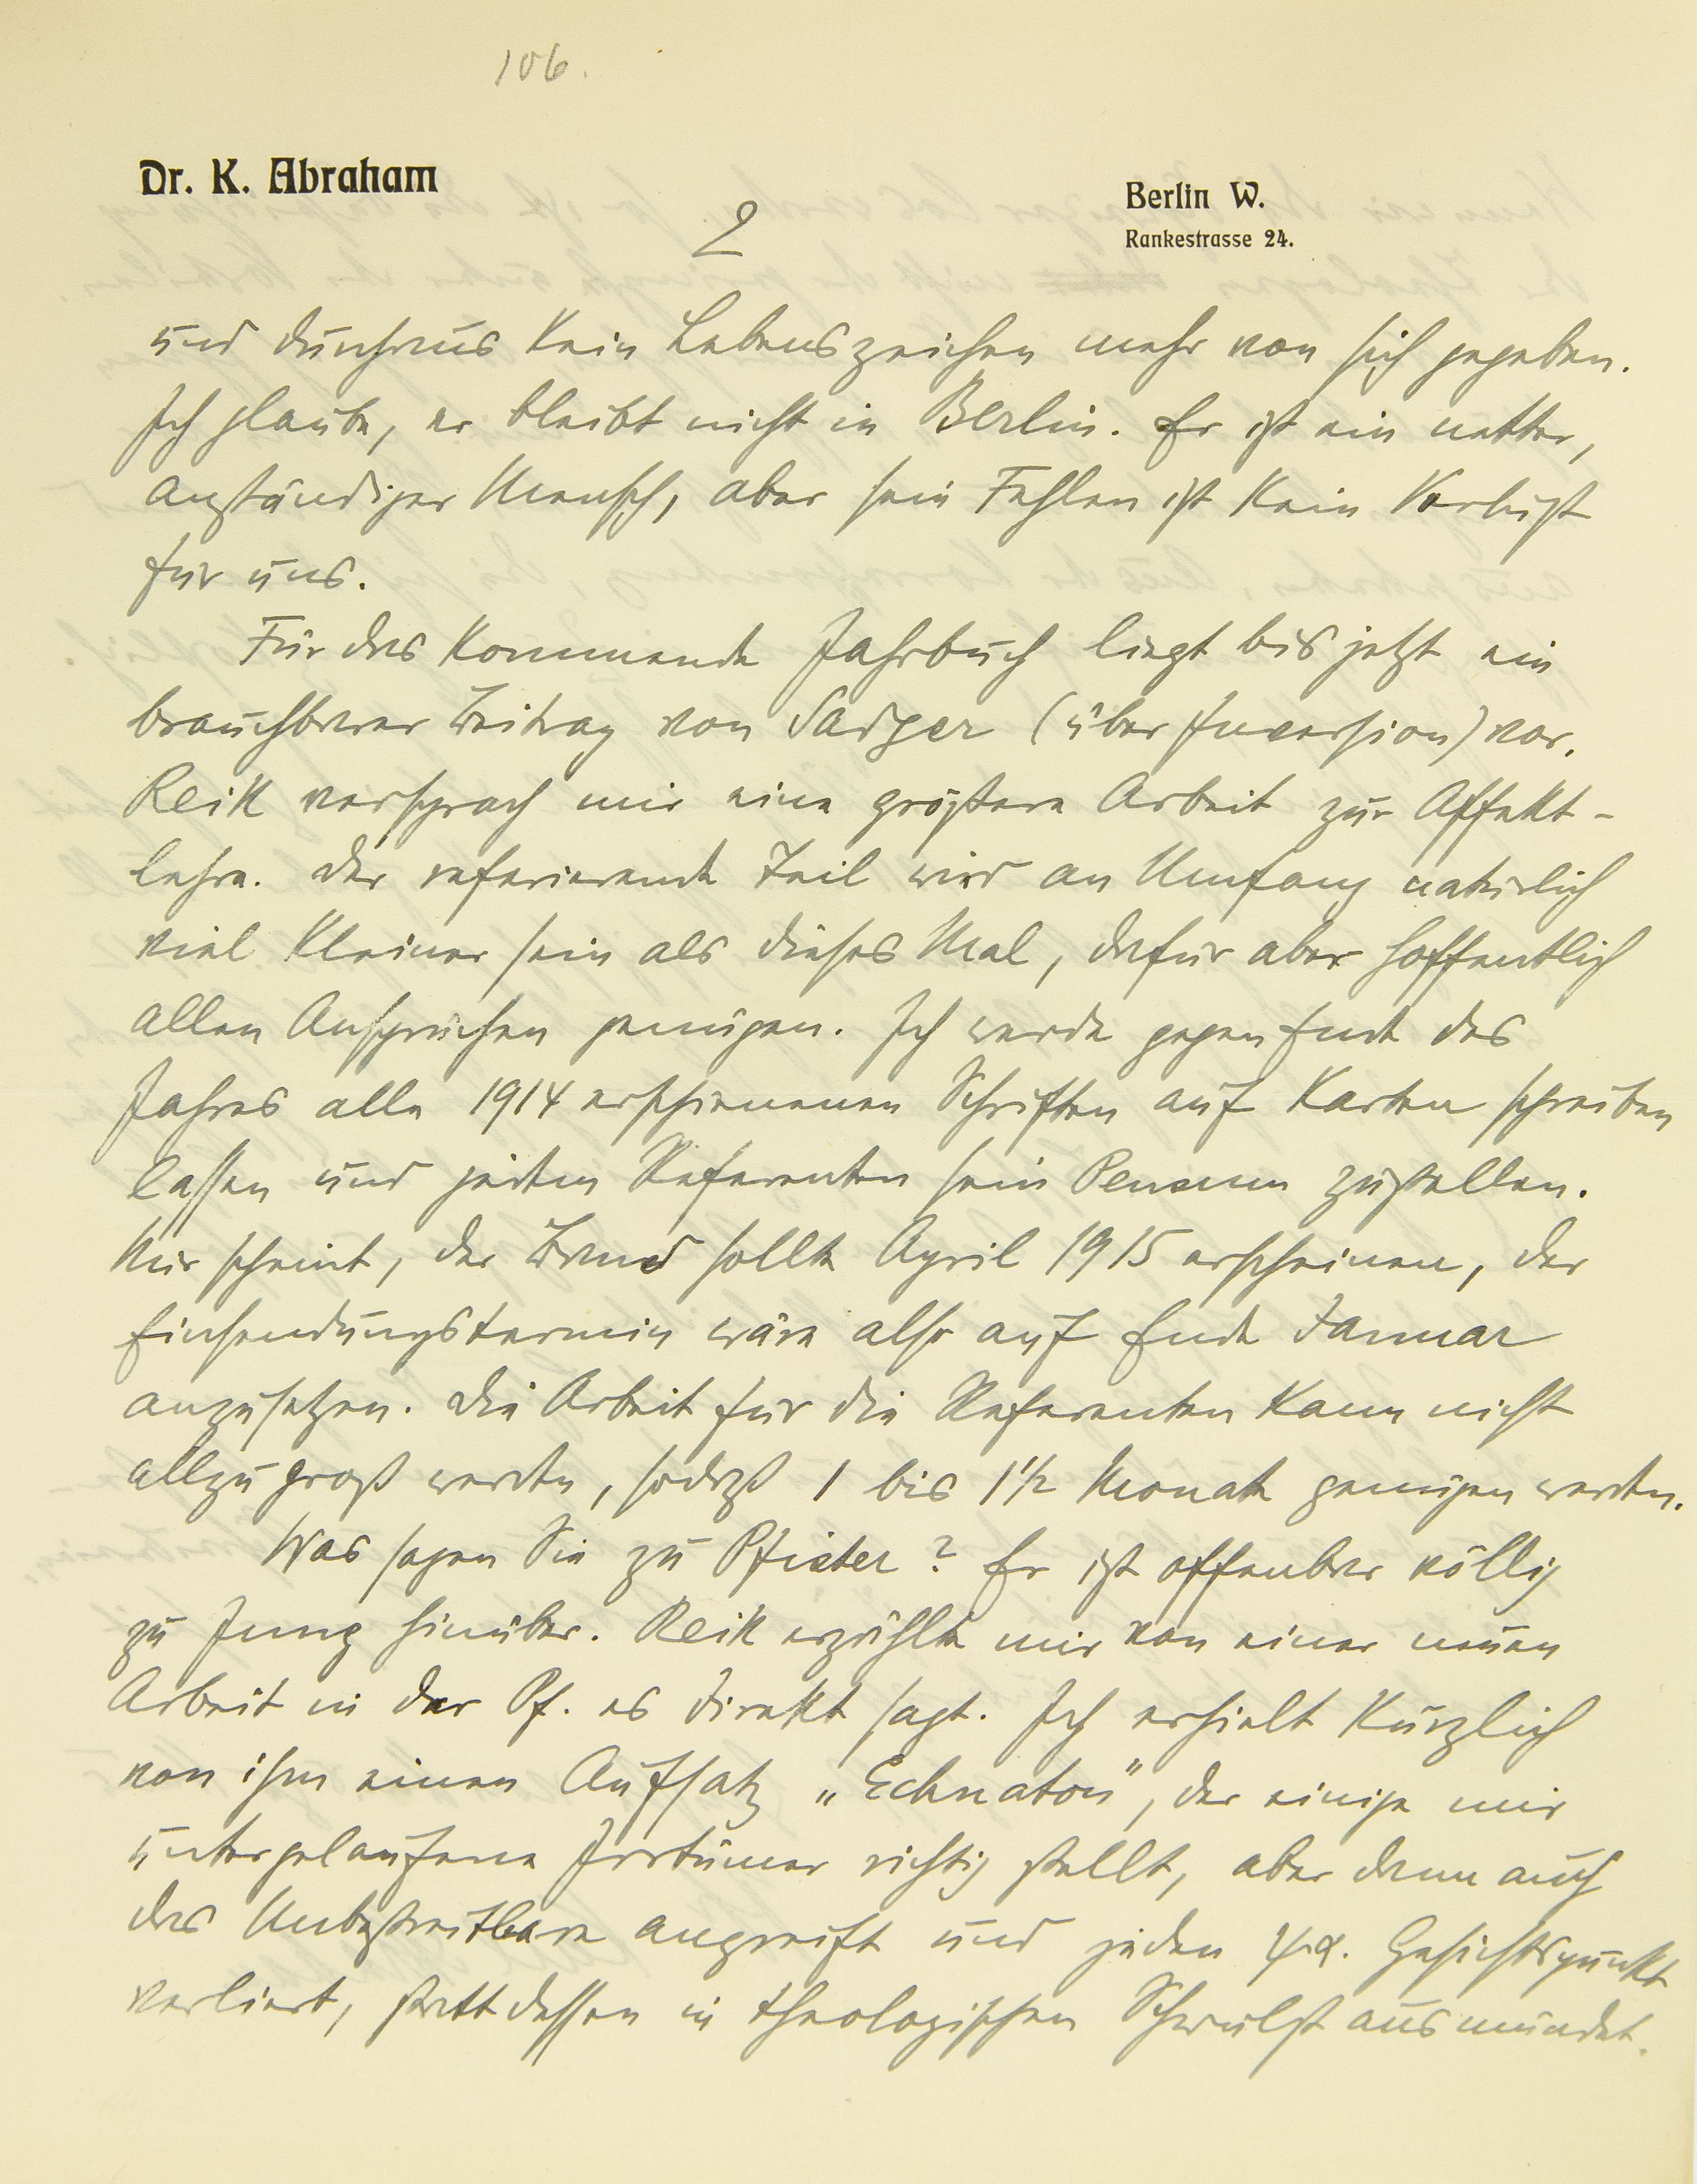 106.
Dr. K. Abraham
2
Berlin W.
Rankestrasse 24.
und durchaus kein Lebenszeichen mehr von sich gegeben.
Ich glaube, er bleibt nicht in Berlin. Er ist ein netter,
anständiger Mensch, aber sein Fehlen ist kein Verlust
für uns.
Für das kommende Jahrbuch liegt bis jetzt ein
brauchbarer Beitrag von Sadger (über Inversion) vor.
Reik versprach mir eine größere Arbeit zur Affekt-
lehre. Der referierende Teil wird an Umfang natürlich
viel kleiner sein als dieses Mal, dafür aber hoffentlich
allen Ansprüchen genügen. Ich werde gegen Ende des
Jahres alle 1914 erschienenen Schriften auf Karten schreiben
lassen und jedem Referenten sein Pensum zustellen.
Mir scheint, der Band sollte April 1915 erscheinen, der
Einsendungstermin wäre also auf Ende Januar
anzusetzen. Die Arbeit für die Referenten kann nicht
allzu groß werden, sodaß 1 bis 1½ Monate genügen werden.
Was sagen Sie zu Pfister? Er ist offenbar völlig
zu Jung hinüber. Reik erzählte mir von einer neuen
Arbeit in der Pf. es direkt sagt. Ich erhielt kürzlich
von ihm einen Aufsatz „Echnaton", der einige mir
untergelaufene Irrtümer richtig stellt, aber dann auch
das Unbestreitbare angreift und jeden ψα. Gesichtspunkt
verliert, statt dessen in theologischen Schwulst ausmündet.